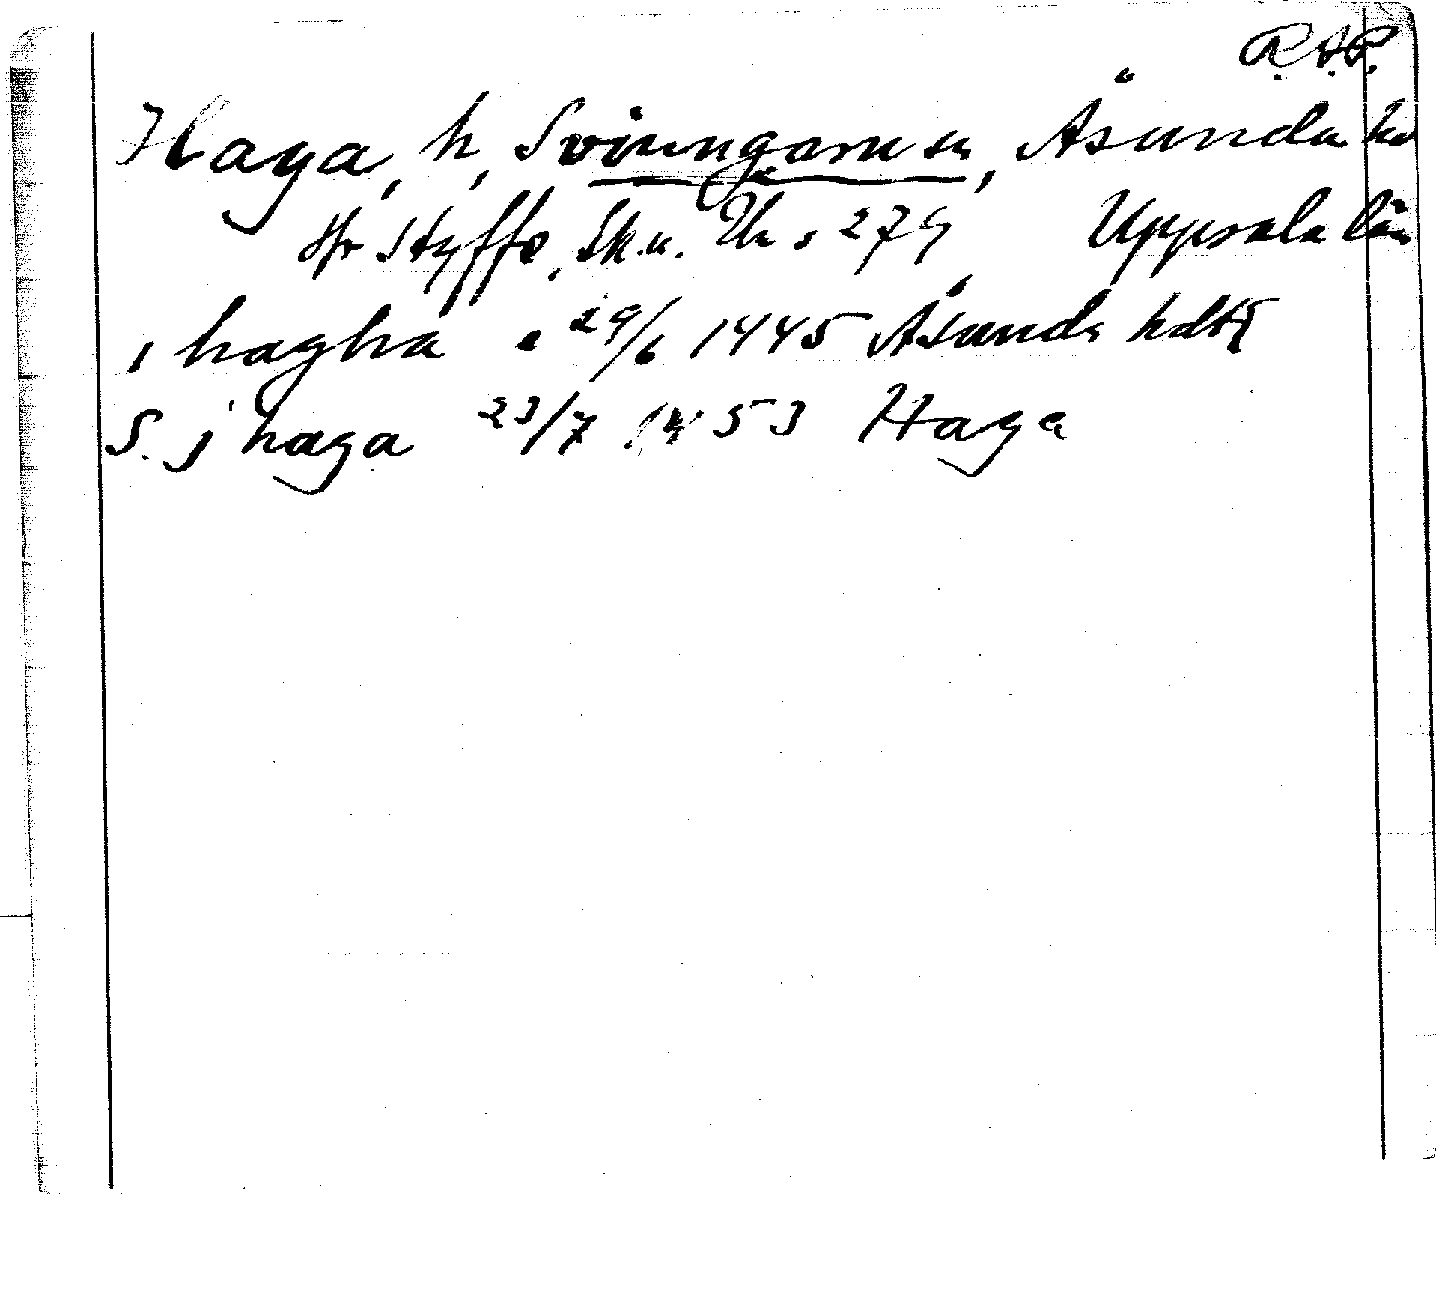 R.A.P.
Haga, h, Svinngarns sn, Åsunda hd
Jfr Styffe, Sk.u. Un s 279 Uppsala län
i hagha 29/6 1445 Åsunda
S. j haga 23/7 1453 Haga